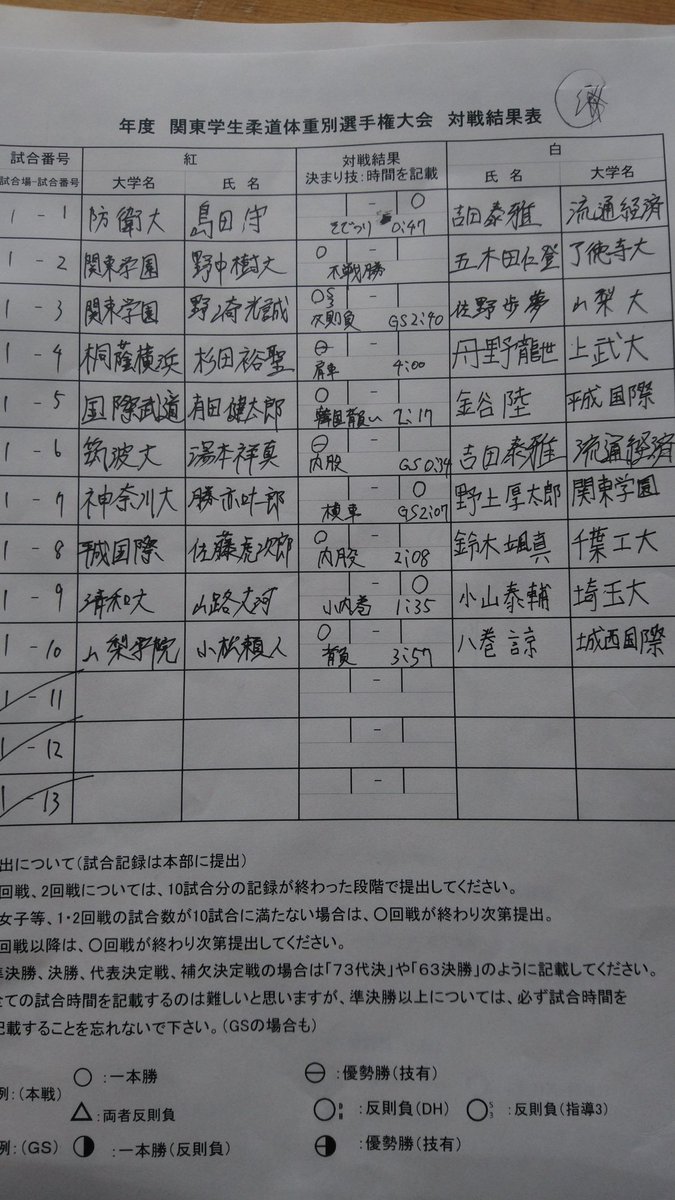 年度 関東学生柔道体重別選手権大会 対戦結果表
試合番号 紅 対戦結果 白
試合場-試合番号 大学名 氏 名 決まり技:時間を記載 氏 名 大学名
1 - 1 防衛大 島田 守 - ○ そでつり 0:47 吉田泰雅 流通経済
1 - 2 関東学園 野中樹大 ○ - 不戦勝 五木田仁登 了徳寺大
1 - 3 関東学園 野崎光誠 ○S3 - 反則負 GS2:40 佐野歩夢 山梨大
1 - 4 桐蔭横浜 杉田裕聖 - 肩車 4:00 丹野龍世 上武大
1 - 5 国際武道 有田健太郎 ○ - 韓国背負い 2:17 金谷 陸 平成国際
1 - 6 筑波大 湯本祥真 - 内股 GS0:34 吉田泰雅 流通経済
1 - 7 神奈川大 - ○ 横車 GS2:07 野上厚太郎 関東学園
1 - 8 平成国際 佐藤虎次郎 ○ - 内股 2:08 鈴木颯真 千葉工大
1 - 9 清和大 山路大河 - ○ 小内巻 1:35 小山泰輔 埼玉大
1 - 10 山梨学院 小松頼人 ○ - 背負 3:57 八巻 諒 城西国際
1 - 11 -
1 - 12 -
1 - 13 -
出について(試合記録は本部に提出)
回戦、2回戦については、10試合分の記録が終わった段階で提出してください。
女子等、1・2回戦の試合数が10試合に満たない場合は、〇回戦が終わり次第提出。
回戦以降は、〇回戦が終わり次第提出してください。
準決勝、決勝、代表決定戦、補欠決定戦の場合は「73代決」や「63決勝」のように記載してください。
全ての試合時間を記載するのは難しいと思いますが、準決勝以上については、必ず試合時間を
記載することを忘れないで下さい。(GSの場合も)
例:(本戦) ○ :一本勝 :優勢勝(技有)
△ :両者反則負 ○DH :反則負(DH) ○S3 :反則負(指導3)
例:(GS) ◑ :一本勝(反則負) :優勢勝(技有)